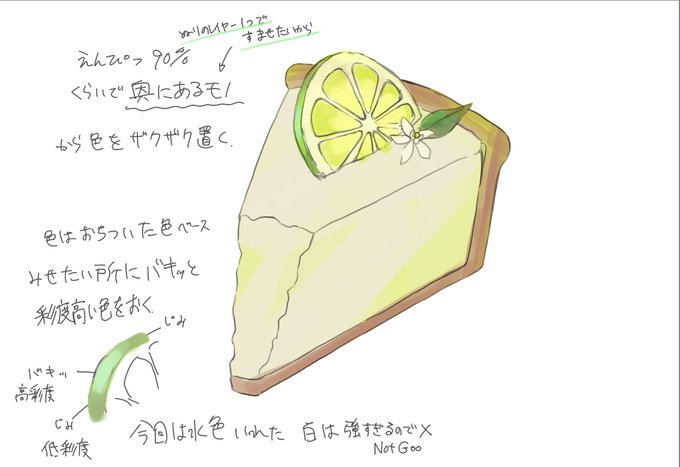 ぬりのレイヤー1つで
すませたいから
えんぴつ90%
くらいで奥にあるモノ
から色をザクザク置く.
色はおちついた色ベース
みせたい所にバキッと
彩度高い色をおく.
じみ
バキッ
高彩度
じみ
低彩度
今回は水色いれた 白は強すぎるので×
Not Goo